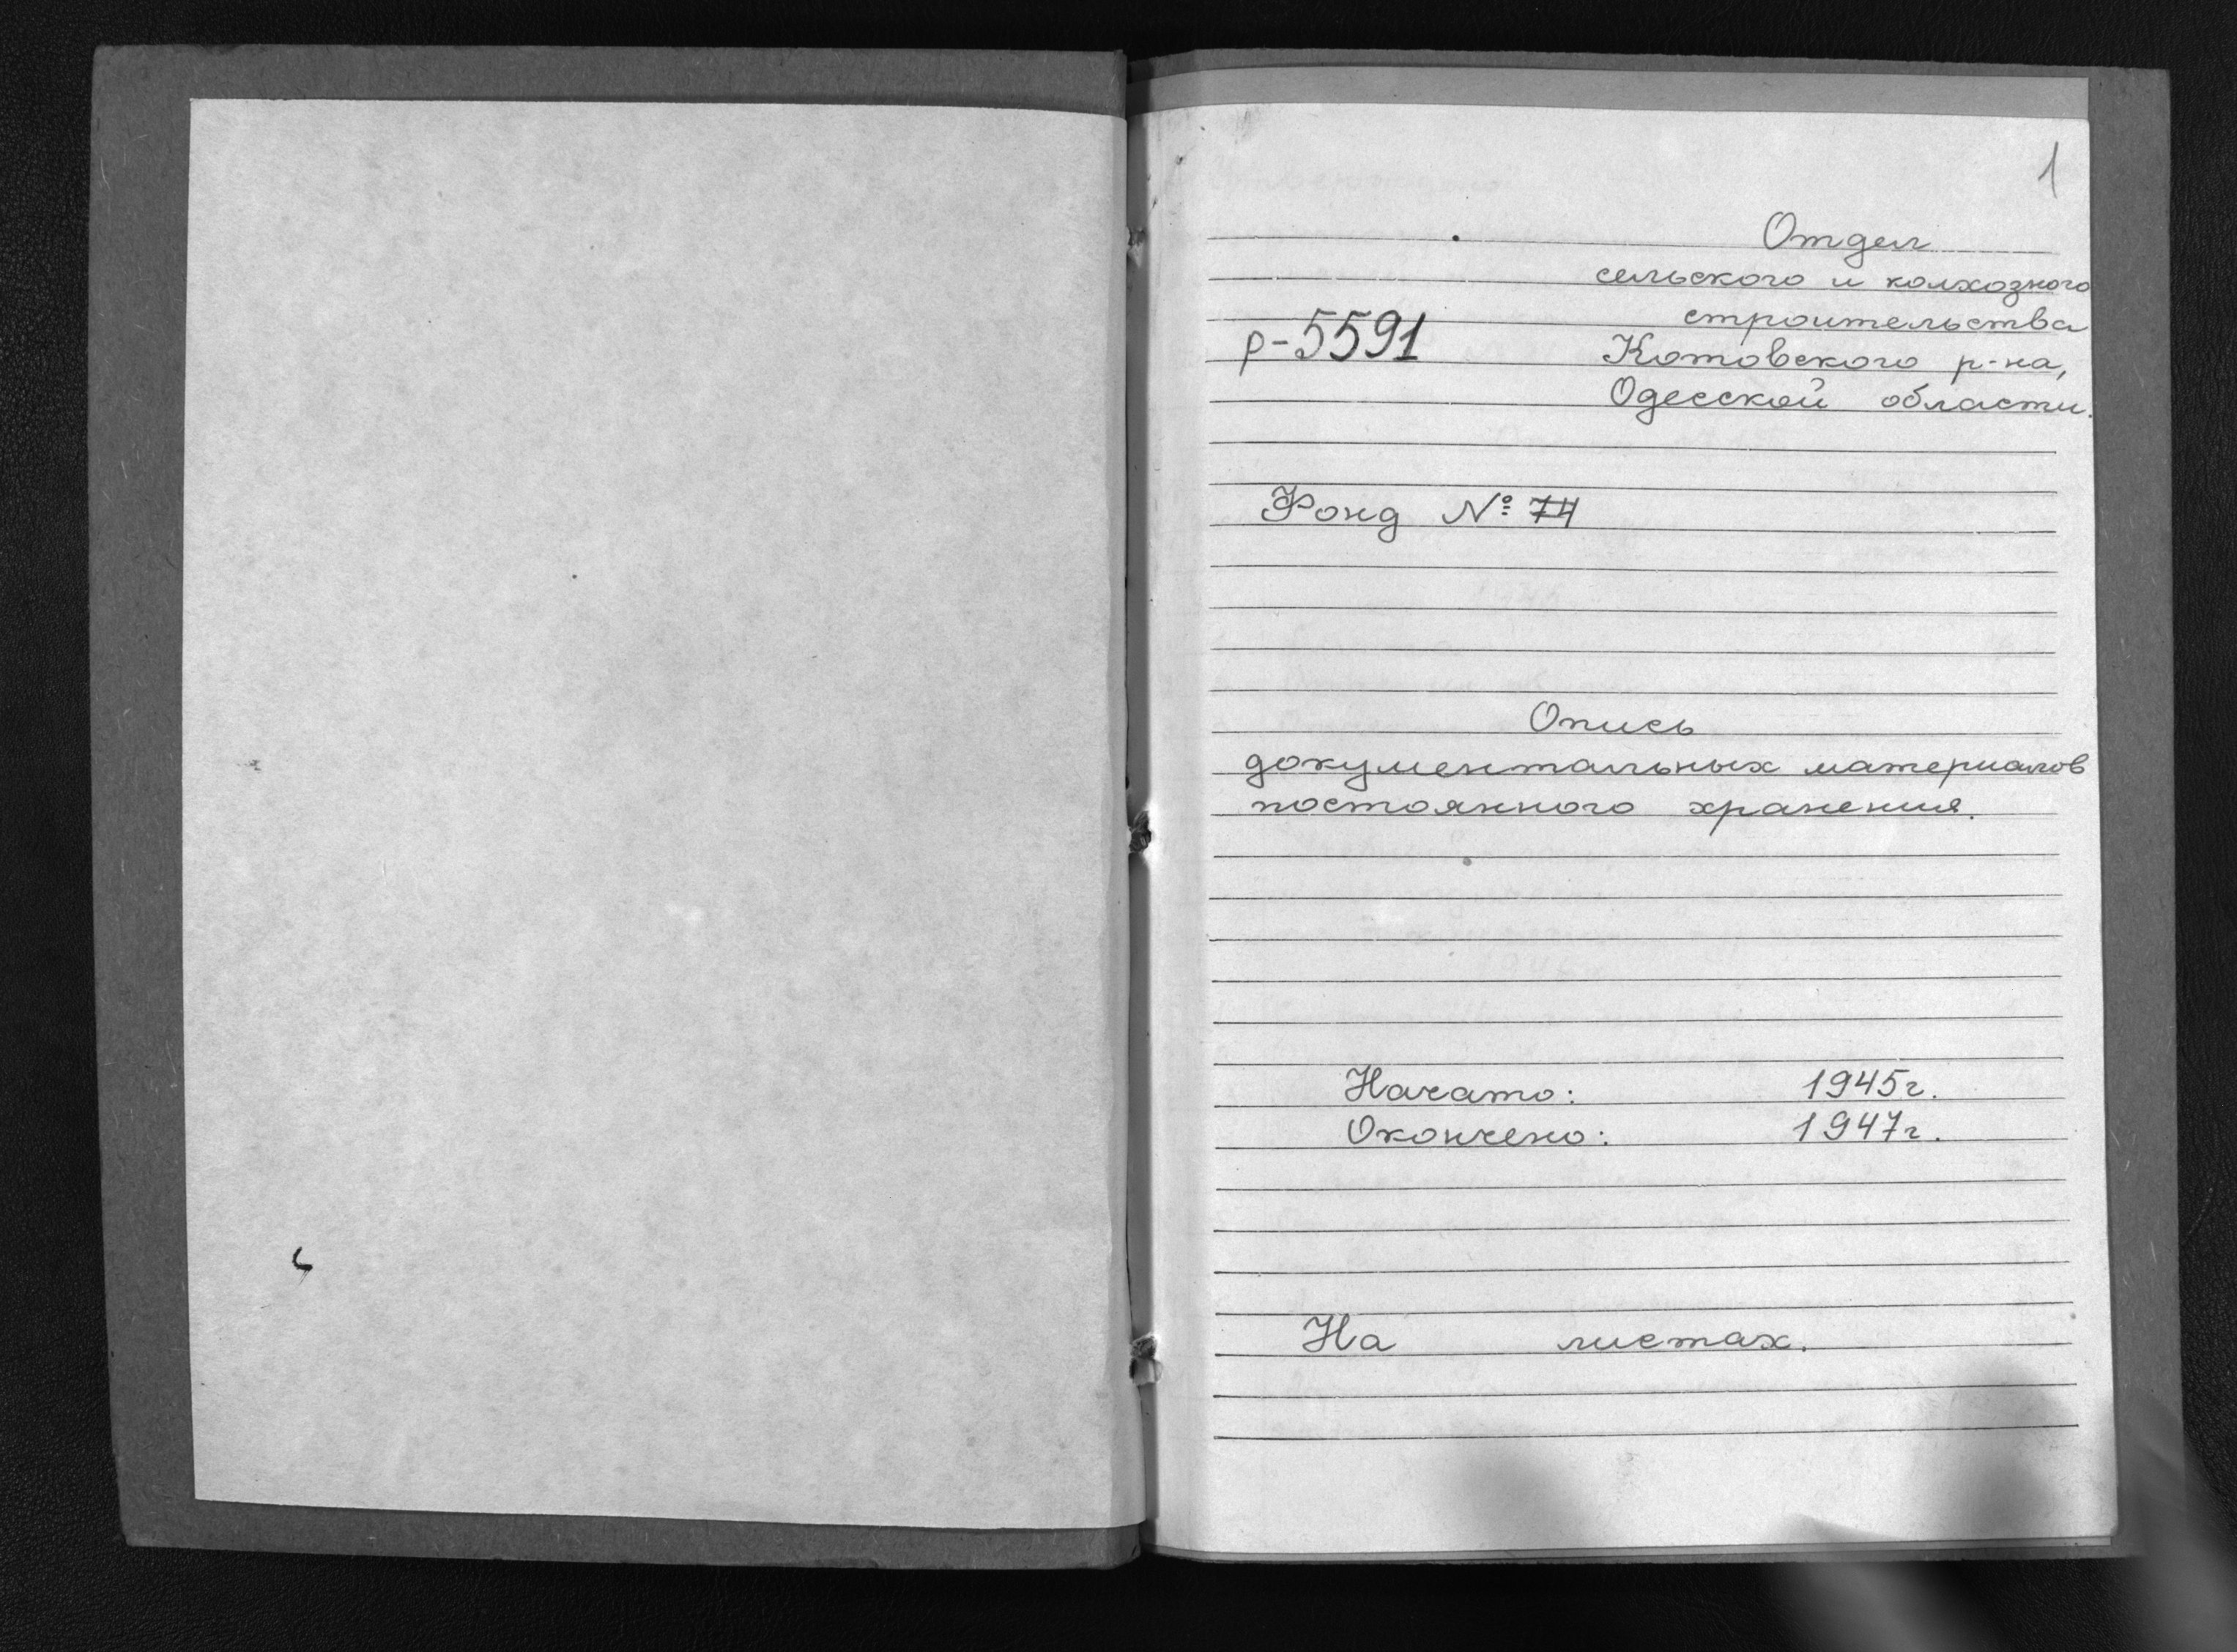 1
Отдел
сельского и колхозного
строительства
р-5591
Котовского р-на,
Одесской области.
Фонд № 74
Опись
документальных материалов
постоянного хранения.
Начато: 1945г.
Окончено: 1947г.
На листах.